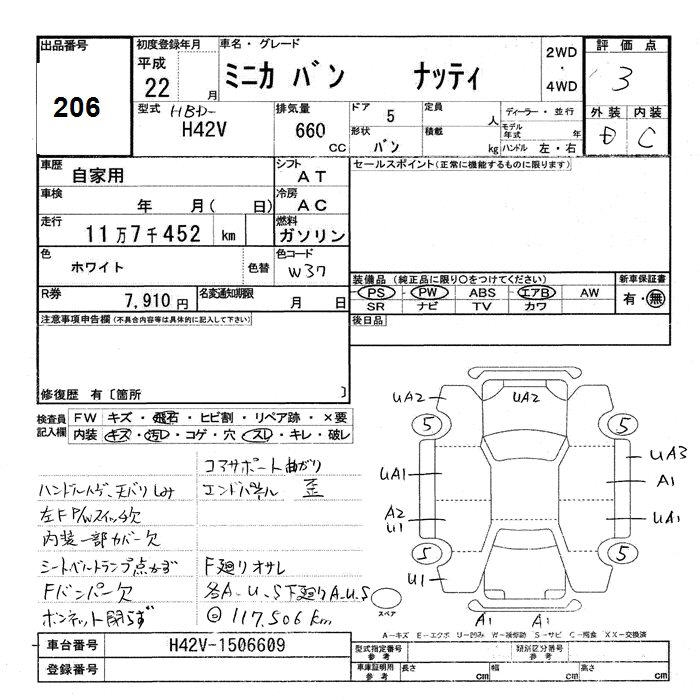 出品番号
206
初度登録年月
平成
22 月
車名・グレード
ミニカ バン ナッティ
2WD
・
4WD
評価点
3
型式 HBD-
H42V
排気量
660 CC
ドア 5
形状 バン
定員 人
積載 kg
ディーラー・並行
モデル年式 年
ハンドル 左・右
外装 内装
D C
車歴
自家用
シフト
AT
セールスポイント(正常に機能するものに限ります)
車検
年 月( 日)
冷房
AC
走行
11万7千452 km
燃料
ガソリン
色
ホワイト 色替
色コード
W37
装備品 (純正品に限り○をつけてください)
新車保証書
PS PW ABS エアB AW
有・無
SR ナビ TV カワ
R券
7,910円
名変通知期限
月 日
後日品
注意事項申告欄(不具合内容等は具体的に記入して下さい)
修復歴 有〔箇所 〕
検査員
記入欄
FW キズ・飛石・ヒビ割・リペア跡・×要
内装 キズ・汚レ・コゲ・穴・スレ・キレ・破レ
コアサポート曲がり
ハンドルハゲ、天バリしみ
エンドパネル 歪
左F P/Wスイッチ欠
内装一部カバー欠
シートベルトランプ点かず
F廻りオサレ
Fバンパー欠
各A.U.S下廻りA.U.S
ボンネット閉らず
◎117,506km
UA2
UA2
5
5
UA3
UA1
A1
A2
U1
UA1
5
5
U1
スペア
A1
A1
A-キズ E-エクボ U-凹み W-補修跡 S-サビ C-腐食 XX-交換済
車台番号
H42V-1506609
型式指定番号
参考
類別区分番号
参考
登録番号
車庫証明用
参考
長さ cm
幅 cm
高さ cm